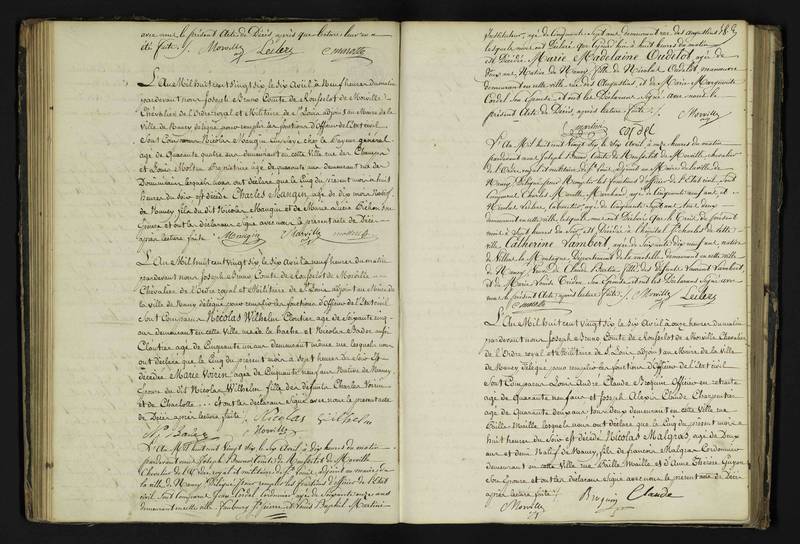 avec nous le présent Acte de Décès, après que lecture leur en a
été faite. Morville Leclerc
L'An Mil huit cent vingt six, le six Avril à neuf heures du matin
pardevant nous Joseph Bruno Comte de Rouselot de Morville
Chevalier de l'Ordre royal et Militaire de St Louis adjoint au Maire de la
Ville de Nancy délégué pour remplir les fonctions d'Officier de l'Etat civil
Sont Comparus Nicolas Mangin Employé chez le Payeur général
âgé de Quarante quatre ans demeurant en cette Ville rue
et Louis propriétaire âgé de quarante ans demeurant rue des
Dominicains lesquels nous ont déclaré que le cinq du présent mois à huit
heures du soir est décédé Charles Mangin, âgé de dix mois Natif
de Nancy fils du dit Nicolas Mangin et de Marie
Epouse et ont les déclarans signé avec nous le présent acte de Décès
après lecture faite. Mangin Morville
L'An Mil huit cent vingt six, le six Avril à neuf heures du matin
pardevant nous Joseph Bruno Comte de Rouselot de Morville
Chevalier de l'Ordre royal et Militaire de St Louis, adjoint au Maire de
la ville de Nancy délégué pour remplir les fonctions d'Officier de l'Etat civil
Sont Comparus Nicolas Wilhelm Cloutier âgé de Soixante cinq
ans demeurant en cette Ville rue de la hache et Nicolas
Cloutier âgé de Cinquante un ans demeurant même rue lesquels nous
ont déclaré que le cinq du présent mois à sept heures du soir est
décédée Marie Voirin âgée de Cinquante neuf ans Native de Nancy
Epouse du dit Nicolas Wilhelm fille des défunts Charles Voirin
et de Charlotte ... et ont les déclarans signé avec nous le présent acte
de Décès après lecture faite. Nicolas Wilhelm
Morville
L'An Mil huit cent Vingt six, le six Avril à dix heures du matin
pardevant nous Joseph Bruno Comte de Rouselot de Morville
Chevalier de l'Ordre royal et militaire de St Louis, adjoint au maire de
la ville de Nancy, délégué pour remplir les fonctions d'officier de l'Etat
civil. Sont comparus Jean Cordel Cordonnier âgé de Soixante ans
demeurant en cette ville faubourg St Pierre et Louis Baptiste Martin
Instituteur, âgé de cinquante sept ans, demeurant rue des augustins
lesquels nous ont déclaré que à huit heures du matin
est Décédée Marie Madelaine Oudelot, âgée de
Native de Nancy, fille de Nicolas Oudelot, manœuvre
demeurant en cette ville, rue des Augustins, et de Marie Marguerite
Cordel son Epouse, et ont les Déclarans Signé avec nous le
présent Acte de Décès, après lecture faite. Morville
martin cordel
L'An Mil huit cent Vingt six, le six Avril, à onze heures du matin
pardevant nous Joseph Bruno Comte de Rouselot de Morville, chevalier
de l'Ordre royal et militaire de St Louis, adjoint au Maire de la ville de
Nancy, délégué pour remplir les fonctions d'officier de l'Etat civil, sont
comparus Charles âgé de cinquante neuf ans, et
Nicolas Leclerc âgé de cinquante sept ans, tous deux
demeurant en cette ville, lesquels nous ont Déclaré que le Trois du présent
mois à huit heures du soir, est Décédée à l'hôpital St Charles de cette
ville, Catherine Lambert, âgée de soixante dix neuf ans, native
de Département de la moselle, demeurant en cette ville
de Nancy, Veuve de Claude fille des défunts Lambert,
et de Marie et ont les Déclarans Signé avec
nous le présent Acte, après lecture faite. Morville Leclerc
L'An Mil huit cent vingt six, le six Avril à onze heures du matin
pardevant nous Joseph Bruno Comte de Rouselot de Morville Chevalier
de l'Ordre royal et Militaire de St Louis, adjoint au Maire de la Ville
de Nancy délégué pour remplir les fonctions d'Officier de l'Etat civil
Sont Comparus Louis André Claude Bregeur Officier en retraite
âgé de Quarante neuf ans et Joseph Alexis Claude Charpentier
âgé de Quarante deux ans tous deux demeurant en cette Ville rue
St lesquels nous ont déclaré que le cinq du présent mois à
huit heures du Soir est décédé Nicolas Malgras âgé de Deux
ans et demi Natif de Nancy, fils de François Malgras Cordonnier
demeurant en cette Ville rue et d'Anne Thérèse
Son Epouse et ont les déclarans signé avec nous le présent acte de Décès
après lecture faite. Claude
Morville